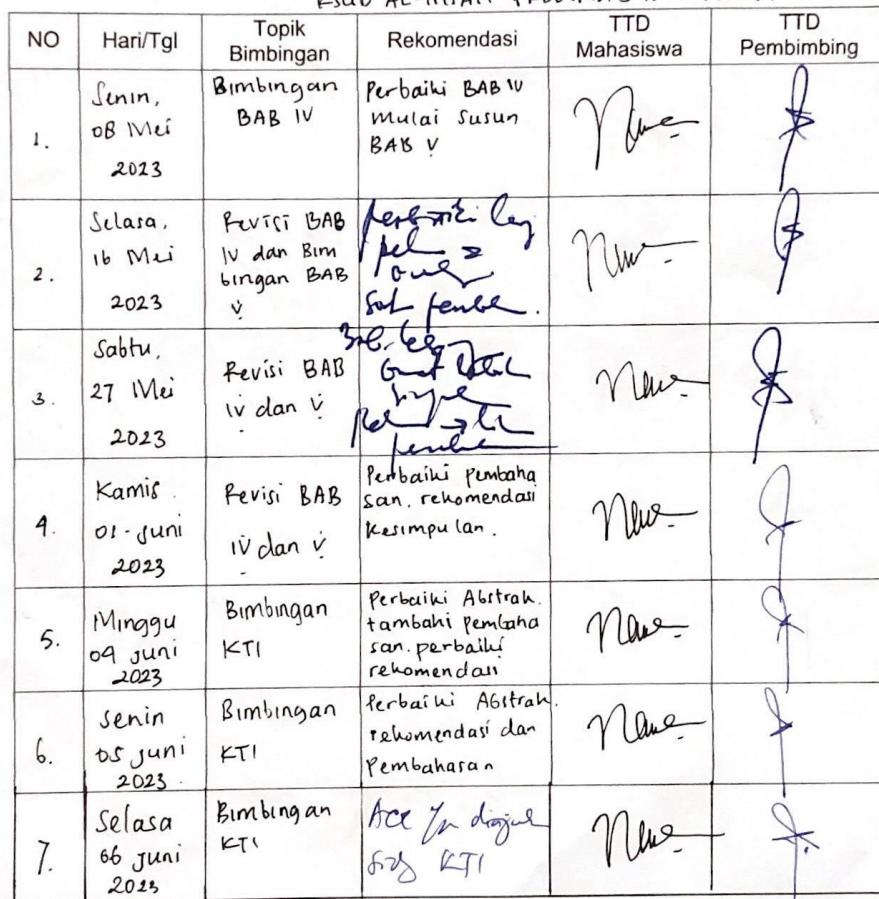 RSUD AL-IHSAN
NO Hari/Tgl Topik Bimbingan Rekomendasi TTD Mahasiswa TTD Pembimbing
1. Senin, 08 Mei 2023
Bimbingan
BAB IV
Perbaiki BAB IV
Mulai Susun
BAB V
2. Selasa, 16 Mei 2023
Revisi BAB
IV dan Bim
bingan BAB
V
3. Sabtu, 27 Mei 2023
Revisi BAB
IV dan V
4. Kamis 01-Juni 2023
Revisi BAB
IV dan V
Perbaiki pembaha
san. rekomendasi
Kesimpulan.
5. Minggu 04 Juni 2023
Bimbingan
KTI
Perbaiki Abstrak.
tambahi pembaha
san. perbaiki
rekomendasi
6. Senin 05 Juni 2023
Bimbingan
KTI
Perbaiki Abstrak.
rekomendasi dan
Pembahasan
7. Selasa 06 Juni 2023
Bimbingan
KTI
Acc
KTI